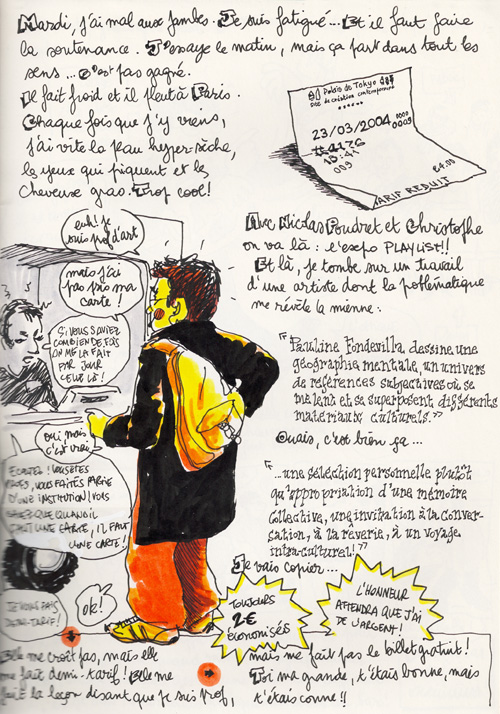 Mardi, j'ai mal aux jambes. Je suis fatigué... Et il faut faire
la soutenance. J'essaye le matin, mais ça part dans tout les
sens... c'est pas gagné.
Il fait froid et il pleut à Paris.
Chaque fois que j'y viens,
j'ai vite la peau hyper-sèche,
les yeux qui piquent et les
cheveux gras. Trop cool!
Palais de Tokyo
site de création contemporaine
23/03/2004
0009
009
€4.00
TARIF REDUIT
euh! je
suis prof d'art
mais j'ai
pas pris ma
carte!
SI VOUS SAVIEZ
COMBIEN DE FOIS
ON ME LA FAIT
PAR JOUR
CELLE LÀ!
oui mais
c'est vrai
ECOUTEZ! VOUS ÊTES
VOUS FAITES PARTIE
D'UNE INSTITUTION! VOUS
SAVEZ QUE QUAND IL
FAUT UNE CARTE, IL FAUT
UNE CARTE!
JE VOUS FAIS
DEMI-TARIF!
ok!
Avec Nicolas Poudret et Christophe
on va là : l'expo PLAYLIST!!
Et là, je tombe sur un travail
d'une artiste dont la problématique
me révèle la mienne :
"Pauline Fondevilla, dessine une
géographie mentale, un univers
de références subjectives où se
mêlent et se superposent différents
matériaux culturels."
Ouais, c'est bien ça...
"...une sélection personnelle plutôt
qu'appropriation d'une mémoire
collective, une invitation à la conver-
sation, à la rêverie, à un voyage
intra-culturel!"
Je vais copier...
TOUJOURS
2€
économisés
L'HONNEUR
ATTENDRA QUE J'AI
DE L'ARGENT!
Elle me croit pas, mais elle
me fait demi-tarif! Elle me
fait la leçon disant que je suis prof,
mais me fait pas le billet gratuit!
Toi ma grande, t'étais bonne, mais
t'étais conne!!